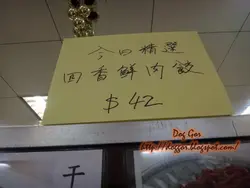 今日精選
回香鮮肉餃
$42
Dog Gor
http://doggor.blogspot.com/
干